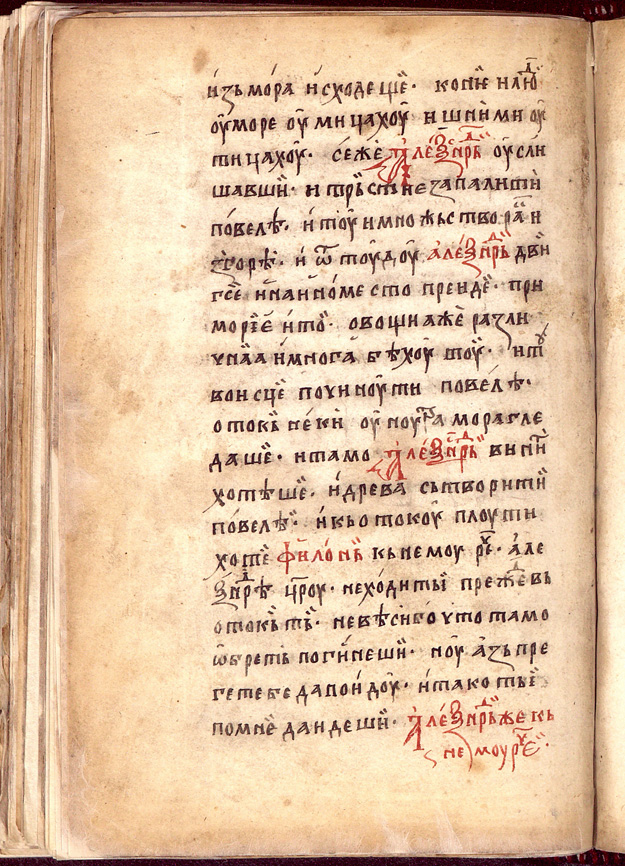 и҆зь мо́ра и҆сходеще̏· копїе и лю́дⷷ
оу҆море оу҆мицахоу̏ и шними оу҆
тицахоу̏· се́же а҆ле́ѯⷩ҇дрь оу҆сли
шавши̏· и трь́стїе запалити̏
пове́лѣ· и҆ тоу̏ и множьство ра́и
згорѣ̀· и҆ ѿ тоудоу̏ а҆ле́ѯⷩ҇дрь дви
гсе̏ и҆ на и҆но ме́сто преиде̏· при
море̏ є҆ и҆ то̏· ово щиа же̏ разли
чнаа и҆многа̀ бѣ́хоу тоу̏· и҆ тꙋ̏
вои сце̏ почи ноути пове́лѣ·
отокь не́ки оу҆ ноутра мора гле
даше̏· и тамо а҆ле́ѯⷩ҇дрь вы нити̏
хотѣше̏· и҆ древа̀ сьтворити̏
пове́лѣ· и кь отокоу̏ плоути
хоте̏ фи҆ло́нь̏ кь немоу рⷱ҇е· а҆ле
ѯⷩ҇дрѐ ц҃роу· не ходи ты̏ пре́жⷣе вь
отокь ть̏· не вѣ́си бо что тамо
ѡ҆бреть погинеши̏· ноу̏ а҆зь пре
ге тебе да поидоу̏· и҆ тако ты̏
по мне̏ да идеши̏· а҆ле́ѯⷩ҇дрь же кь
не моу рⷱ҇е·